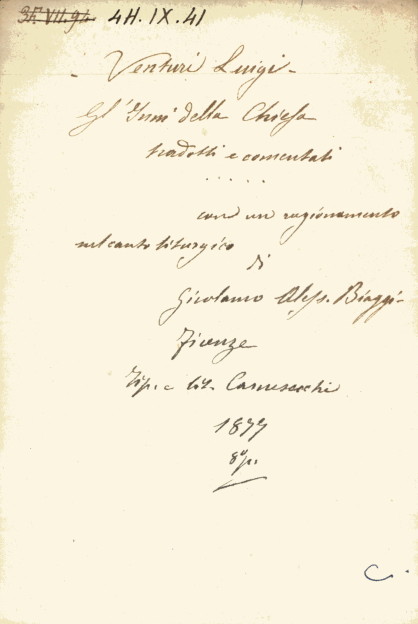 37.VII.94 4H.IX.41
- Venturi Luigi -
Gl'Inni della Chiesa
tradotti e comentati
. . . . .
con un ragionamento
sul canto liturgico
di
Girolamo Aless. Biaggi -
Firenze
Tip. e lit. Carnesecchi
1877
8º p.
C.